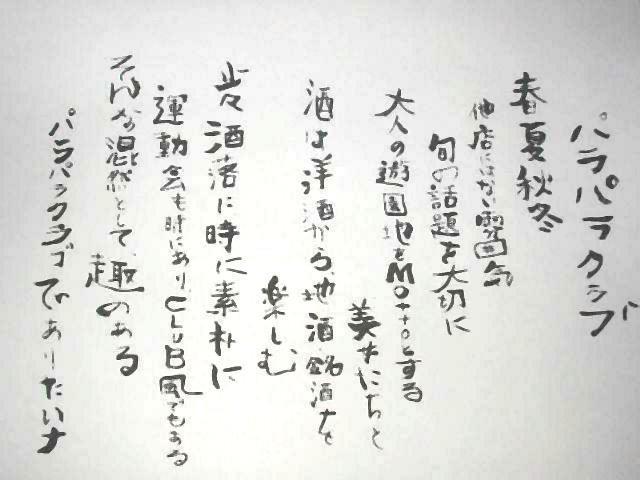 パラパラクラブ
春夏秋冬
他店にはない雰囲気
旬の話題を大切に
大人の遊園地をMottoとする
美女たちと
酒は洋酒から地酒銘酒まで
楽しむ
時に洒落に時に素朴に
運動会も時にありCLUB風でもある
そんな混然として趣のある
パラパラクラブでありたいナ